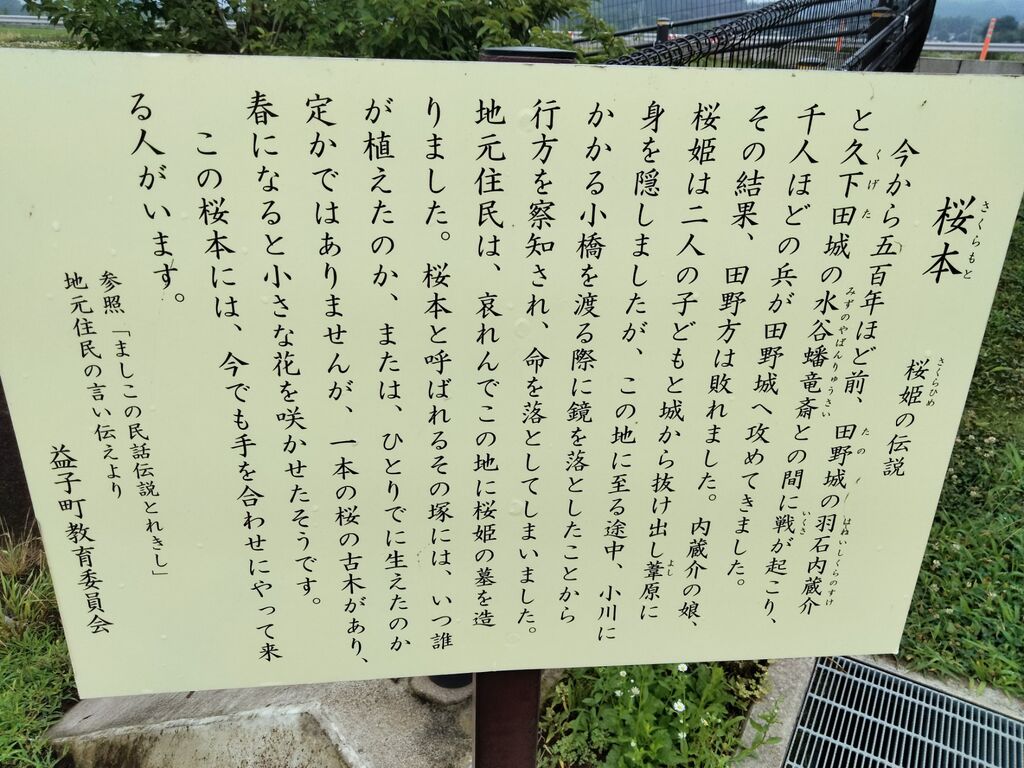 桜本
さくらもと
桜姫の伝説
さくらひめ
今から五百年ほど前、田野城の羽石内蔵介
たの
はねいしくらのすけ
と久下田城の水谷蟠竜斎との間に戦が起こり、
くげた
みずのやばんりゅうさい
いくさ
千人ほどの兵が田野城へ攻めてきました。
その結果、田野方は敗れました。内蔵介の娘、
桜姫は二人の子どもと城から抜け出し葦原に
よし
身を隠しましたが、この地に至る途中、小川に
かかる小橋を渡る際に鏡を落としたことから
行方を察知され、命を落としてしまいました。
地元住民は、哀れんでこの地に桜姫の墓を造
りました。桜本と呼ばれるその塚には、いつ誰
が植えたのか、または、ひとりでに生えたのか
定かではありませんが、一本の桜の古木があり、
春になると小さな花を咲かせたそうです。
この桜本には、今でも手を合わせにやって来
る人がいます。
参照「ましこの民話伝説とれきし」
地元住民の言い伝えより
益子町教育委員会